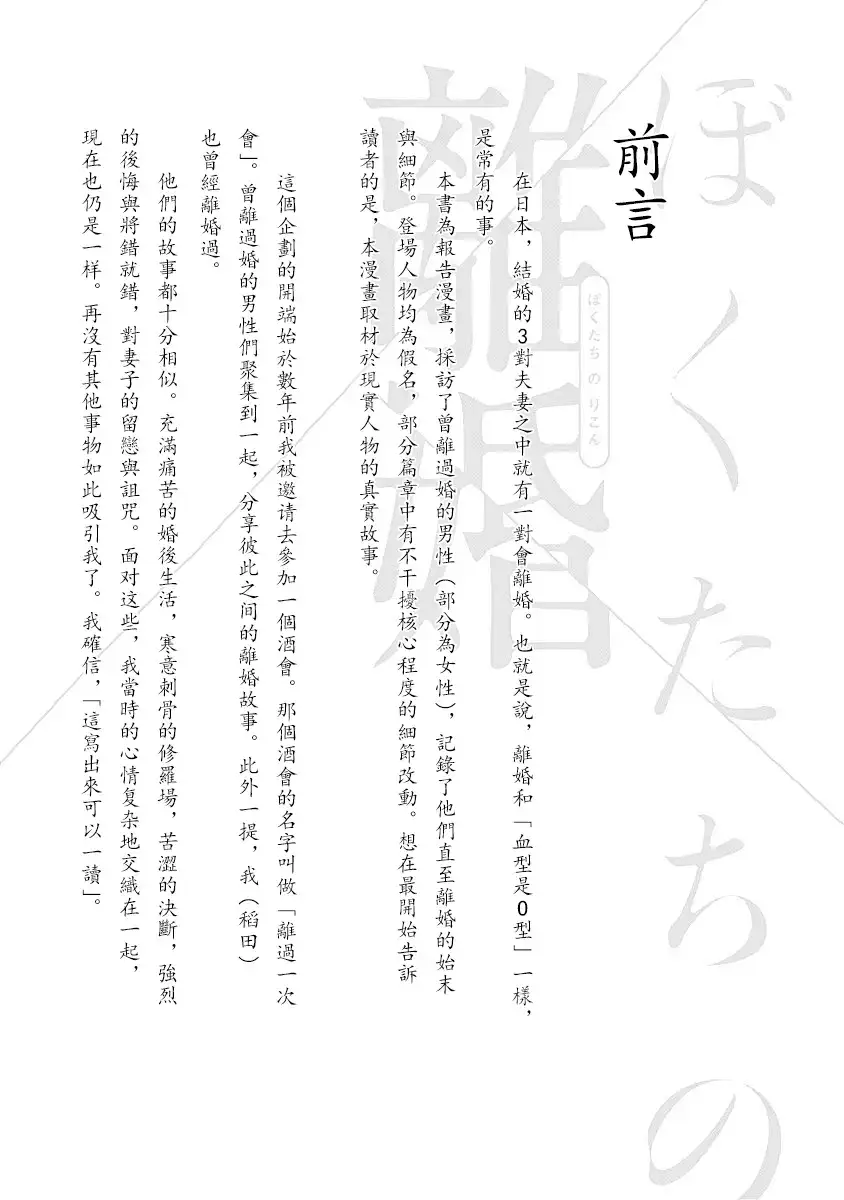 ぼくたちの
離婚
ぼくたちのりこん
前言
在日本，結婚的3對夫妻之中就有一對會離婚。也就是說，離婚和「血型是O型」一樣，
是常有的事。
本書為報告漫畫，採訪了曾離過婚的男性（部分為女性），記錄了他們直至離婚的始末
與細節。登場人物均為假名，部分篇章中有不干擾核心程度的細節改動。想在最開始告訴
讀者的是，本漫畫取材於現實人物的真實故事。
這個企劃的開端始於數年前我被邀请去參加一個酒會。那個酒會的名字叫做「離過一次
會」。曾離過婚的男性們聚集到一起，分享彼此之間的離婚故事。此外一提，我（稻田）
也曾經離婚過。
他們的故事都十分相似。充滿痛苦的婚後生活，寒意刺骨的修羅場，苦澀的決斷，強烈
的後悔與將錯就錯，對妻子的留戀與詛咒。面对这些，我當時的心情复杂地交織在一起，
現在也仍是一样。再沒有其他事物如此吸引我了。我確信，「這寫出來可以一讀」。